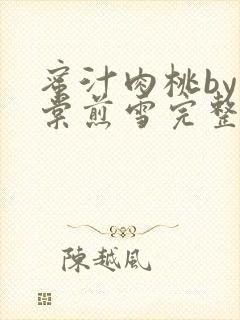 蜜汁肉桃by
棠煎雪完整
陳越风